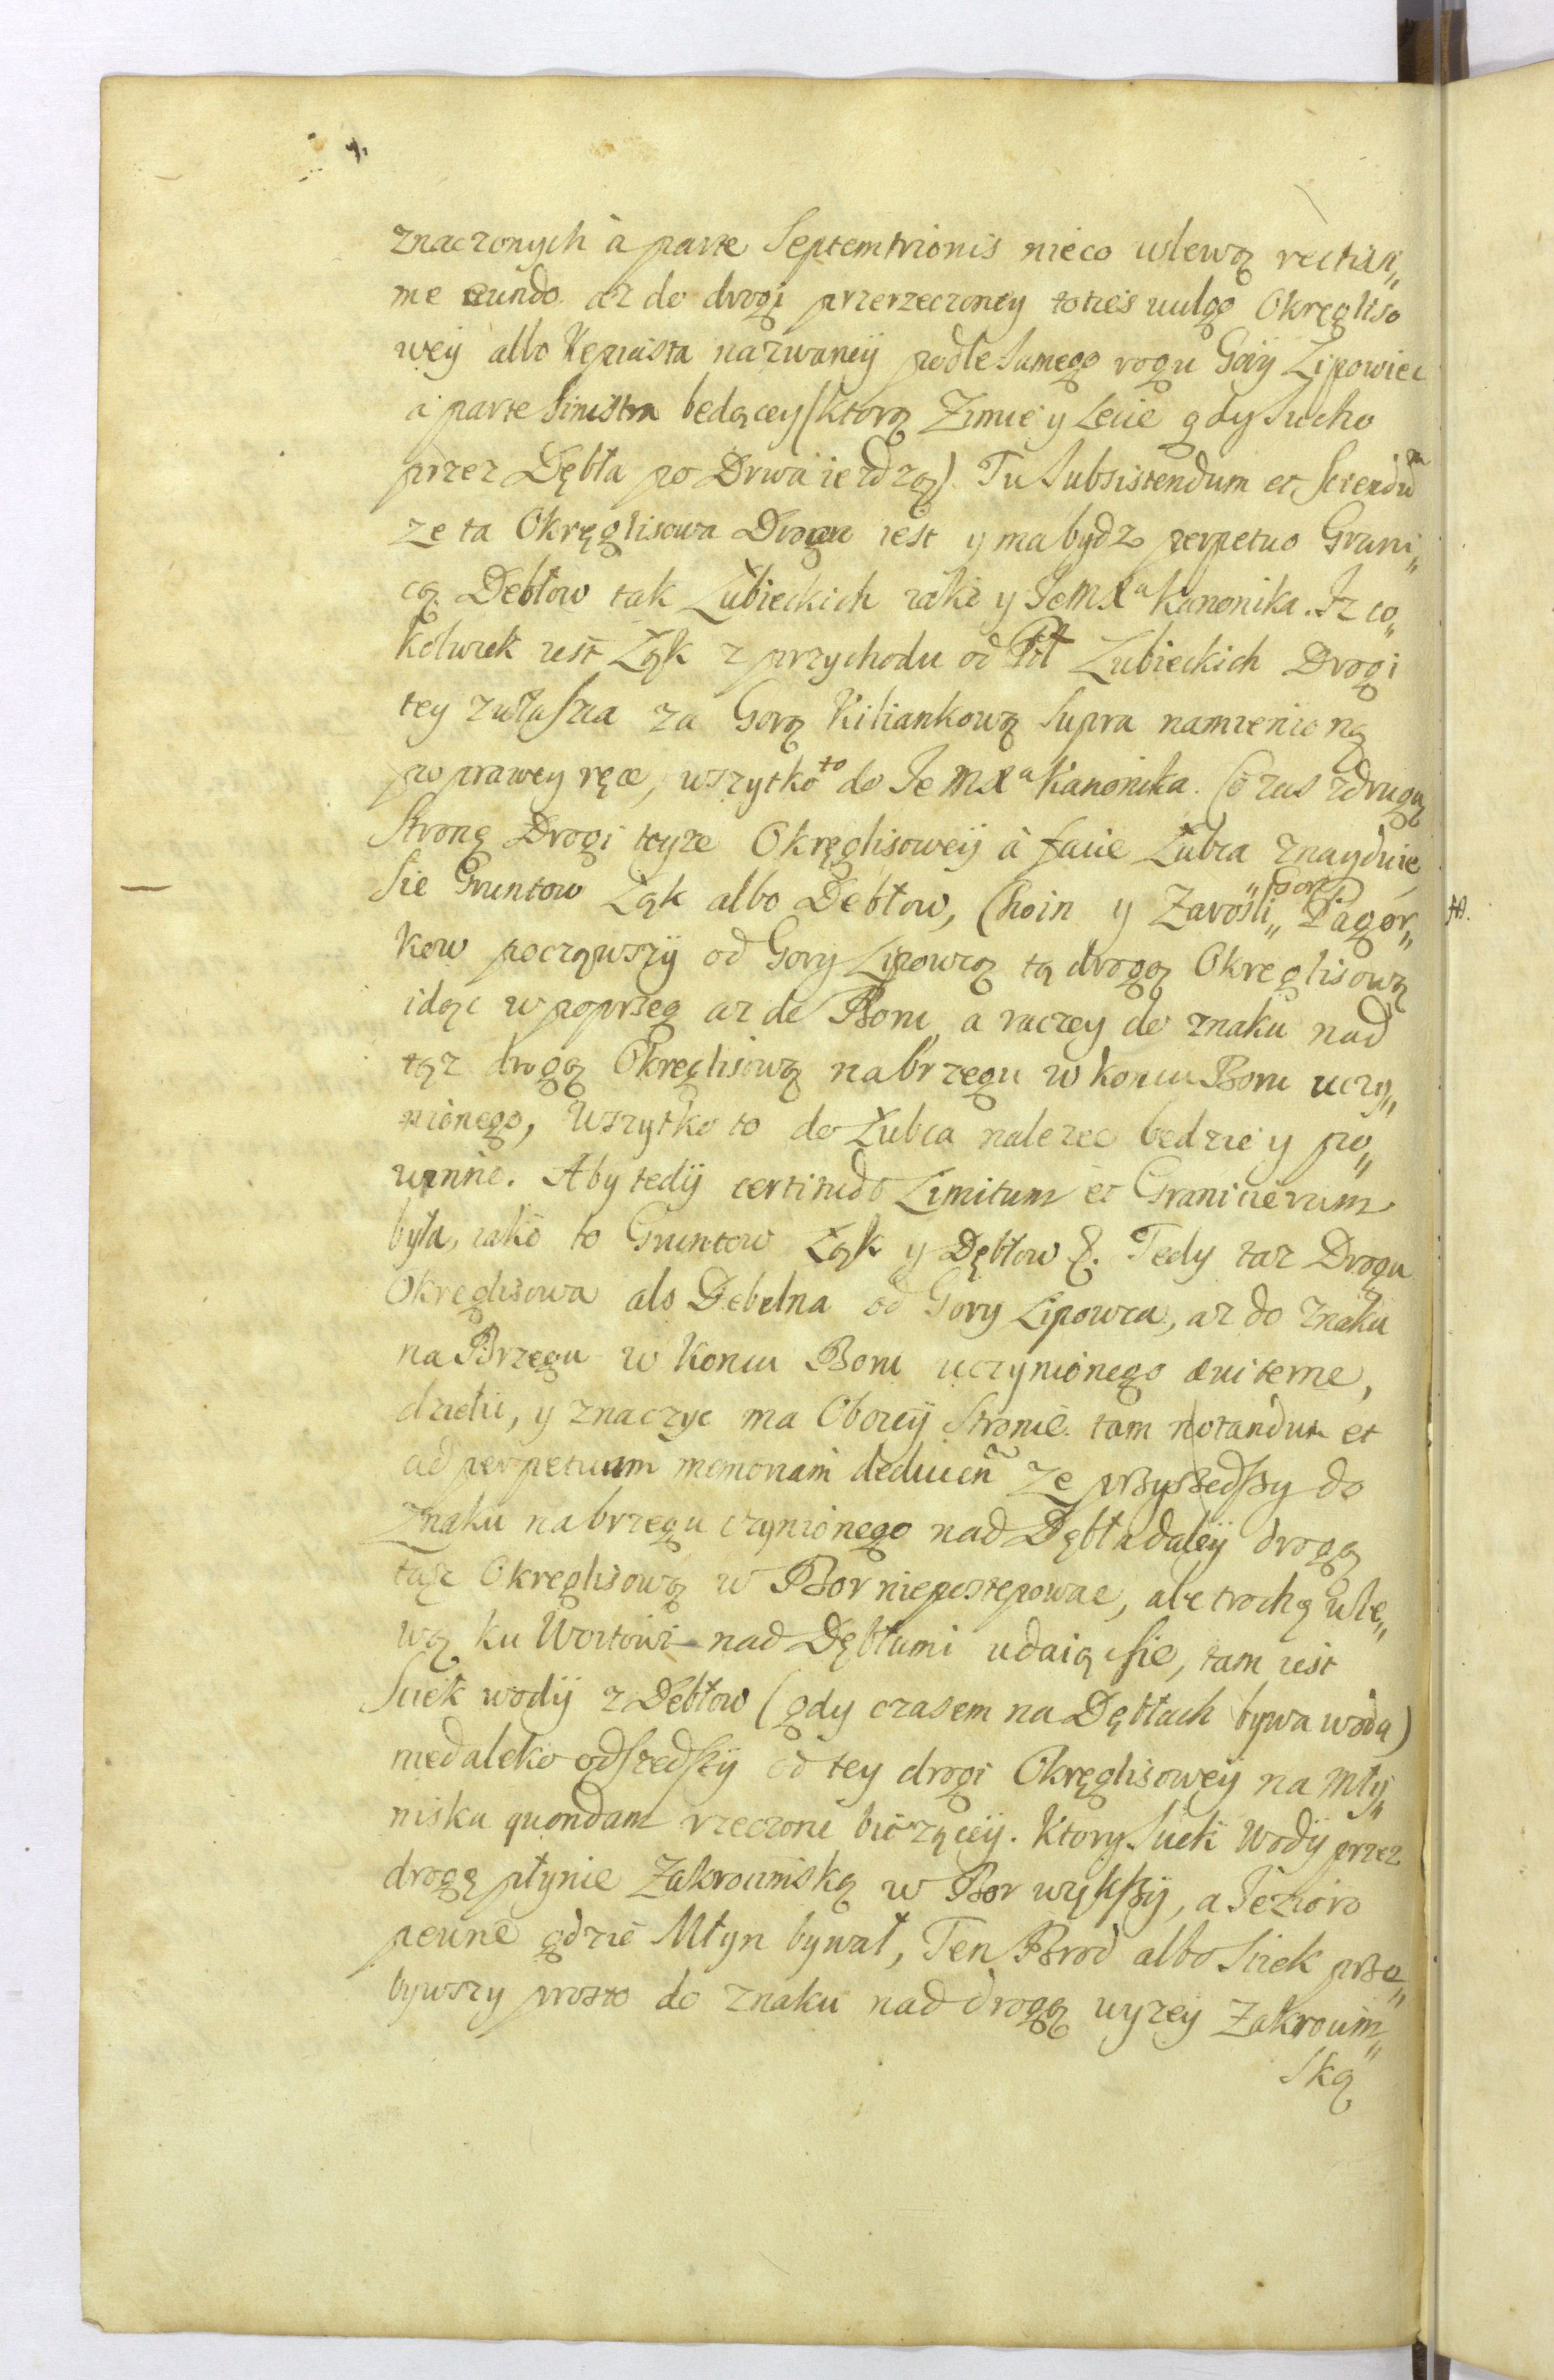 znaczonych à parte Septemtrionis nieco wlewą rectiss„
me eundo az do drogi przerzeczoney toties vulgo Okręgliso
weÿ albo Kępiasta nazwaneÿ podle samego rogu Gory Lipowiec
à parte sinistra będącey (ktorą Zimie y Lecie gdy sucho
przez Dębła po Drwa iezdzą). Tu Subsistendum et Sciendũ
ze ta Okręglisowa Droga iest y ma bydz perpetuo Grani„
cą Debłow tak Łubieckich iako y Je MXa Kanonika. Iz co„
kolwiek iest Łąk z przychodu od Pol Łubieckich Drogi
tey zwłaszcza za Gorą Kiliankową Supra namienioną
po prawey ręce, wszytko to do Je MXa Kanonika. Co zas zdrugą
Stronę Drogi teyze Okręglisoweÿ à facie Łubca znayduie
sie Gruntow Łąk albo Debłow, Choin y Zarośli„ „Gor„ Pagor„
kow począwszÿ od Gorÿ Lipowcą tą drogą Okręglisową
idąc w poprzeg az do Boru, a raczey do znaku nad
tąz drogą Okręglisową na brzegu w koncu Boru uczy„
nionego, Wszytko to do Łubca nalezec będzie y po„
winno. Aby tedÿ certitudo Limitum et Granicierum
była, iako to Gruntow Łąk y Dębłow &. Tedy taz Droga
Okręglisowa als Debelna od Gory Lipowca, az do znaku
na Brzegu w Koncu Boru uczynionego æviterne,
dzielic, y znaczyc ma Obowÿ Stronie. tam notandum et
ad perpetuam memoriam deducen ze przyszedszy do
Znaku na brzegu czynionego nad Dębła daleÿ drogą
tąz Okręglisową w Bor niepostępowac, ale trochę wle„
wą ku Wortowi nad Dębłami udaiąc sie, tam iest
Sciek wodÿ z Debłow (gdy czasem na Dębłach bywa woda)
niedaleko odszedszÿ od tey drogi Okręglisoweÿ na Młÿ„
niska quondam rzeczone bieząceÿ. Ktory Sciek Wodÿ przez
drogę płynie Zakroumską w Bor większÿ, a Jezioro
pewne gdzie Młyn bywał, Ten Brod albo Sciek prze„
bywszy prosto do znaku nad drogą wyzeÿ Zakroum„
ską